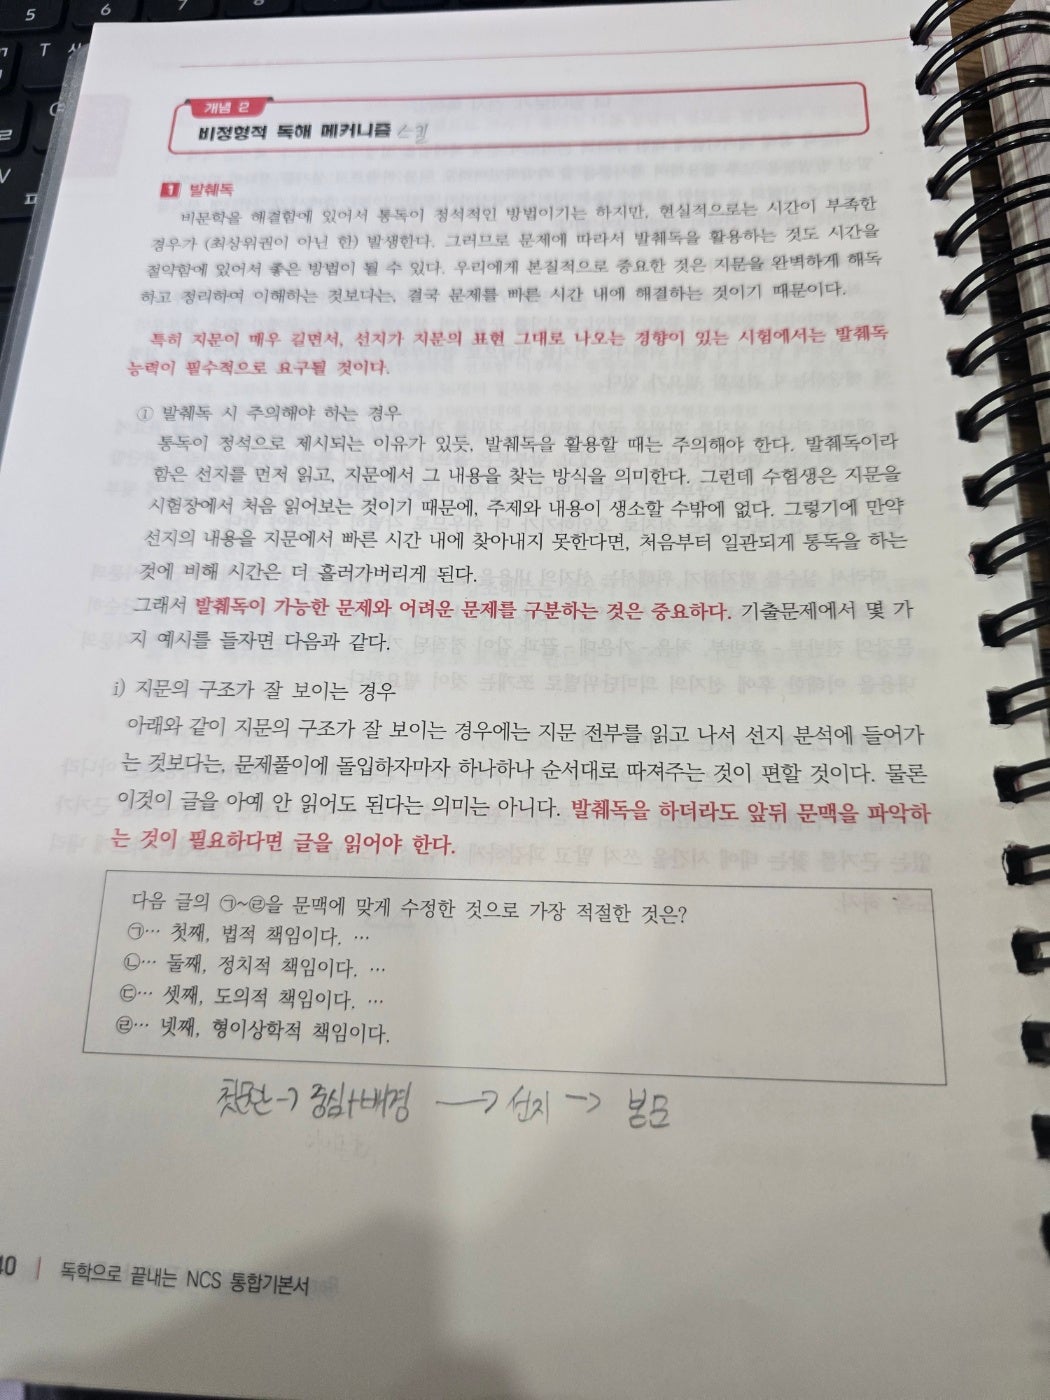 5 6 7
T
개념 2
비정형적 독해 메커니즘 스킬
1 발췌독
비문학을 해결함에 있어서 통독이 정석적인 방법이기는 하지만, 현실적으로는 시간이 부족한
경우가 (최상위권이 아닌 한) 발생한다. 그러므로 문제에 따라서 발췌독을 활용하는 것도 시간을
절약함에 있어서 좋은 방법이 될 수 있다. 우리에게 본질적으로 중요한 것은 지문을 완벽하게 해독
하고 정리하여 이해하는 것보다는, 결국 문제를 빠른 시간 내에 해결하는 것이기 때문이다.
특히 지문이 매우 길면서, 선지가 지문의 표현 그대로 나오는 경향이 있는 시험에서는 발췌독
능력이 필수적으로 요구될 것이다.
① 발췌독 시 주의해야 하는 경우
통독이 정석으로 제시되는 이유가 있듯, 발췌독을 활용할 때는 주의해야 한다. 발췌독이라
함은 선지를 먼저 읽고, 지문에서 그 내용을 찾는 방식을 의미한다. 그런데 수험생은 지문을
시험장에서 처음 읽어보는 것이기 때문에, 주제와 내용이 생소할 수밖에 없다. 그렇기에 만약
선지의 내용을 지문에서 빠른 시간 내에 찾아내지 못한다면, 처음부터 일관되게 통독을 하는
것에 비해 시간은 더 흘러가버리게 된다.
그래서 발췌독이 가능한 문제와 어려운 문제를 구분하는 것은 중요하다. 기출문제에서 몇 가
지 예시를 들자면 다음과 같다.
i) 지문의 구조가 잘 보이는 경우
아래와 같이 지문의 구조가 잘 보이는 경우에는 지문 전부를 읽고 나서 선지 분석에 들어가
는 것보다는, 문제풀이에 돌입하자마자 하나하나 순서대로 따져주는 것이 편할 것이다. 물론
이것이 글을 아예 안 읽어도 된다는 의미는 아니다. 발췌독을 하더라도 앞뒤 문맥을 파악하
는 것이 필요하다면 글을 읽어야 한다.
다음 글의 ㉠~㉣을 문맥에 맞게 수정한 것으로 가장 적절한 것은?
㉠… 첫째, 법적 책임이다. …
㉡… 둘째, 정치적 책임이다. …
㉢… 셋째, 도의적 책임이다. …
㉣… 넷째, 형이상학적 책임이다.
첫문단 → 중심+배경 → 선지 → 본문
40 | 독학으로 끝내는 NCS 통합기본서